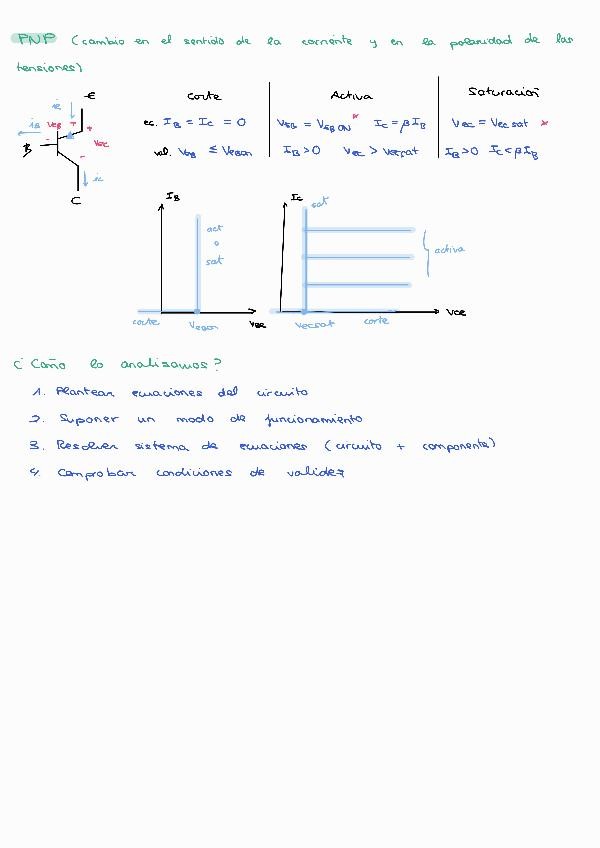 PNP (cambio en el sentido de la corriente y en la polaridad de las
tensiones)
E
iE
iB VEB + +
VEC
B - -
iC
C
Corte Activa Saturación
ec. IB = IC = 0 VEB = VEB ON * IC = βIB VEC = VEC sat *
val. VEB ≤ VEBON IB>0 VEC > VECsat IB>0 IC<βIB
IB IC
act
o
sat
corte VEBON VBE
sat
activa
VECsat corte VCE
¿Cómo lo analizamos?
1. Plantear ecuaciones del circuito
2. Suponer un modo de funcionamiento
3. Resolver sistema de ecuaciones (circuito + componente)
4. Comprobar condiciones de validez